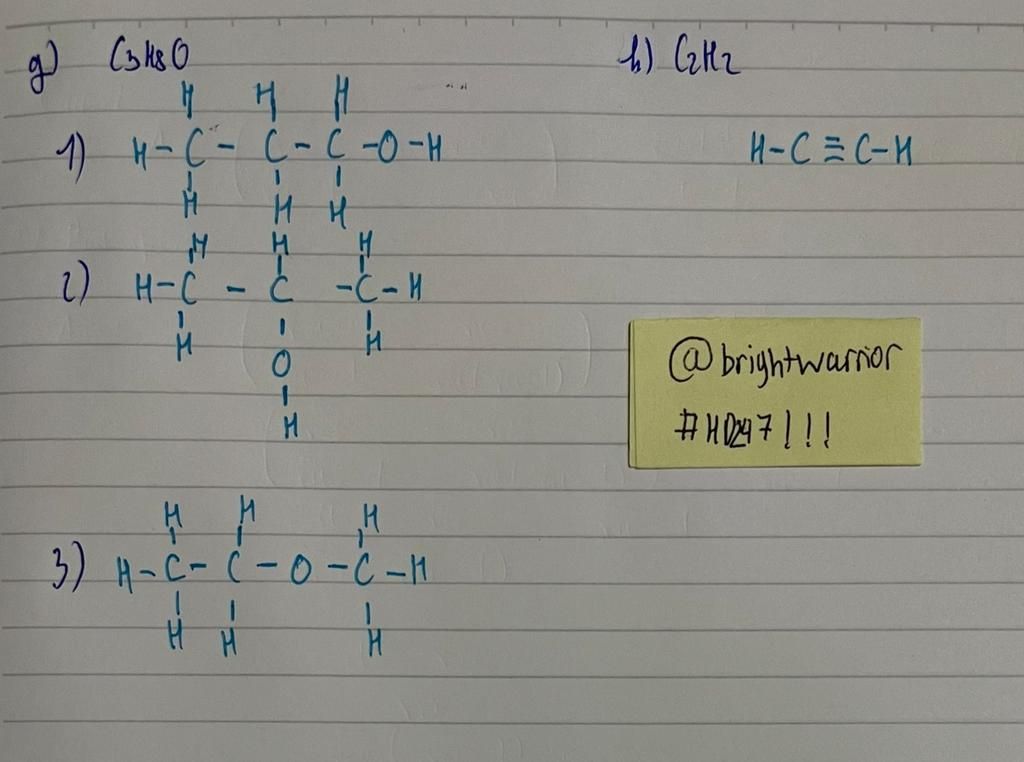 g) C3H8O
H H H
1) H-C-C-C-O-H
H H H
H H H
2) H-C-C-C-H
H H
O
H
H H H
3) H-C-C-O-C-H
H H H
h) C2H2
H-C≡C-H
@brightwarrior
#HD247!!!